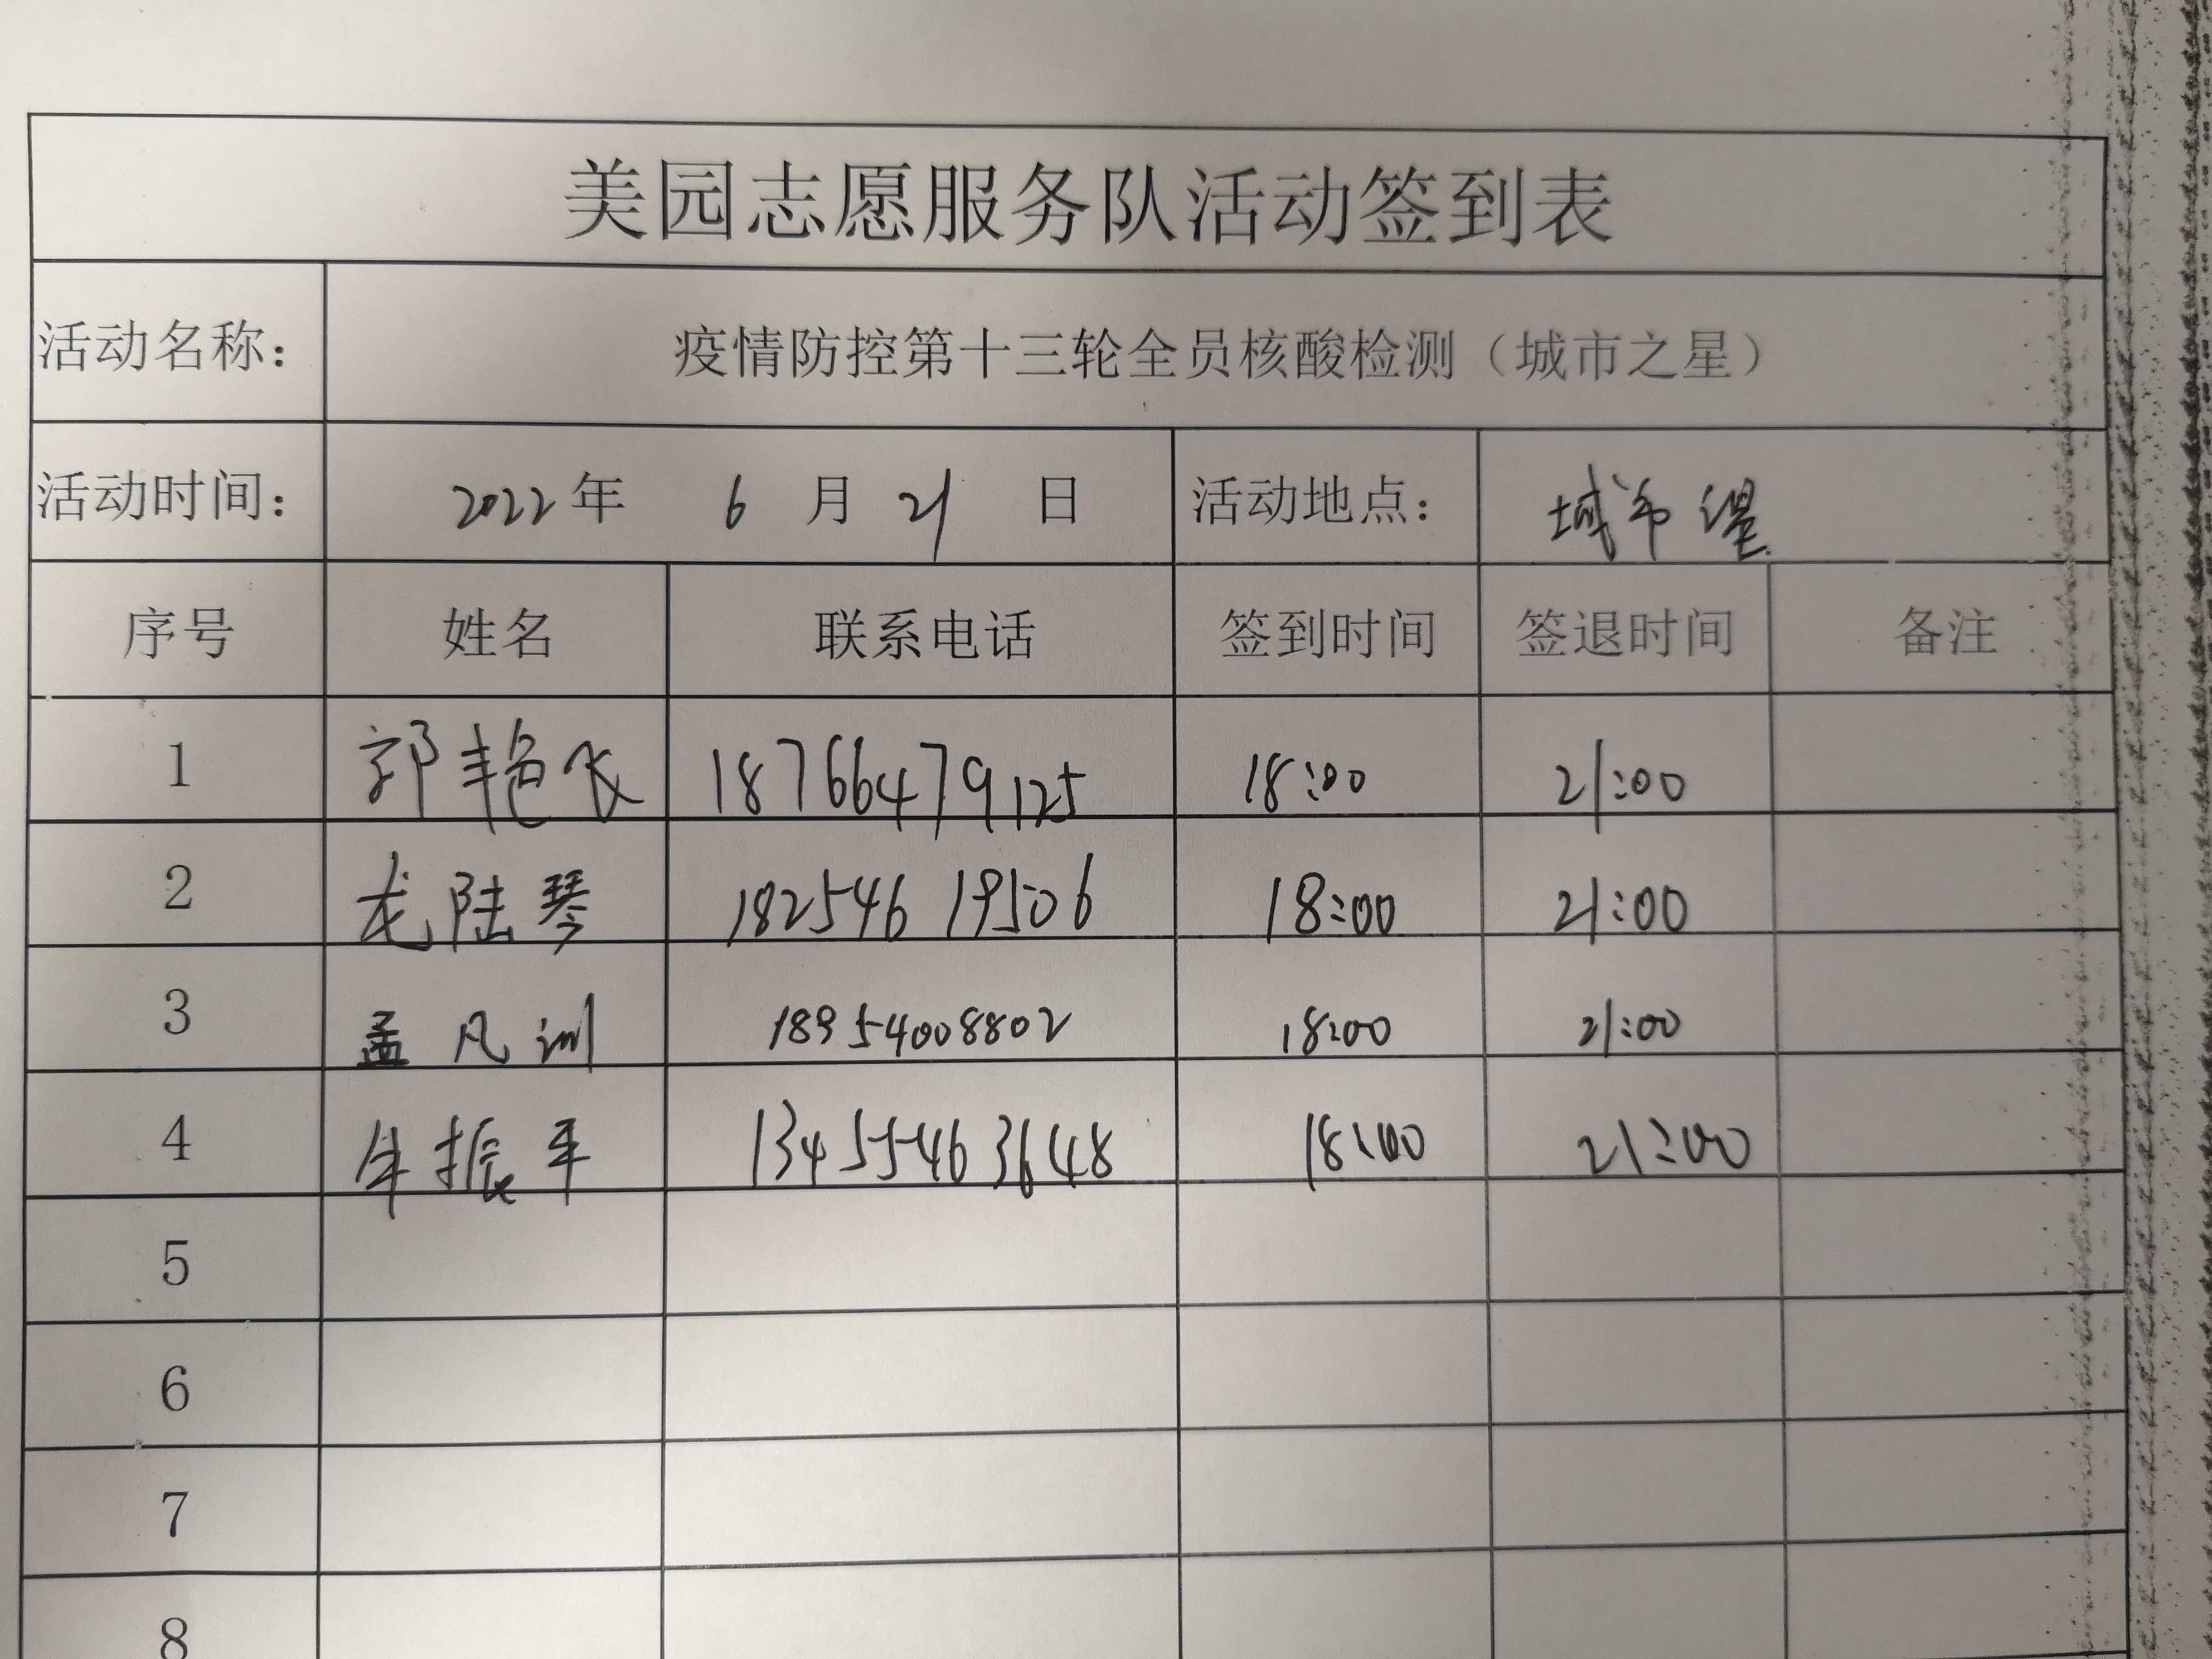 美园志愿服务队活动签到表
活动名称： 疫情防控第十三轮全员核酸检测（城市之星）
活动时间： 2022年 6 月 21 日 活动地点： 城市之星
序号 姓名 联系电话 签到时间 签退时间 备注
1 郭艳 18766479125 18:00 21:00
2 龙陆琴 18254619506 18:00 21:00
3 孟凡训 18954008802 18:00 21:00
4 牟振平 13455463648 18:00 21:00
5
6
7
8